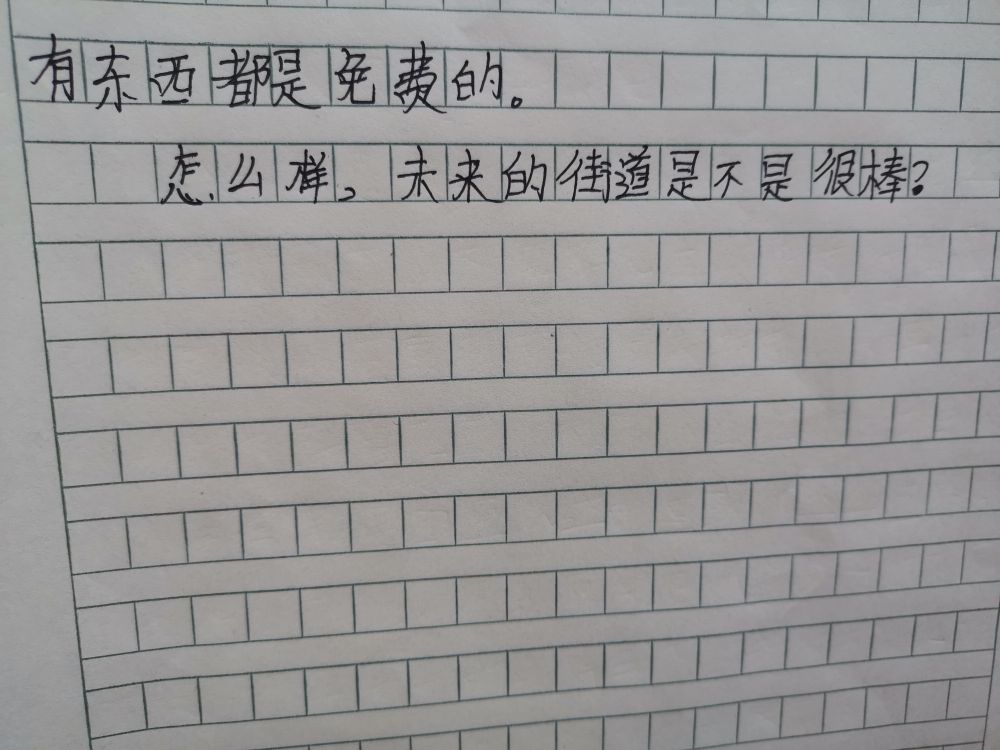 有东西都是免费的。
怎么样，未来的街道是不是很棒？